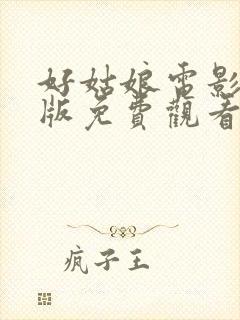 好姑娘電影
版免費觀看
疯子王